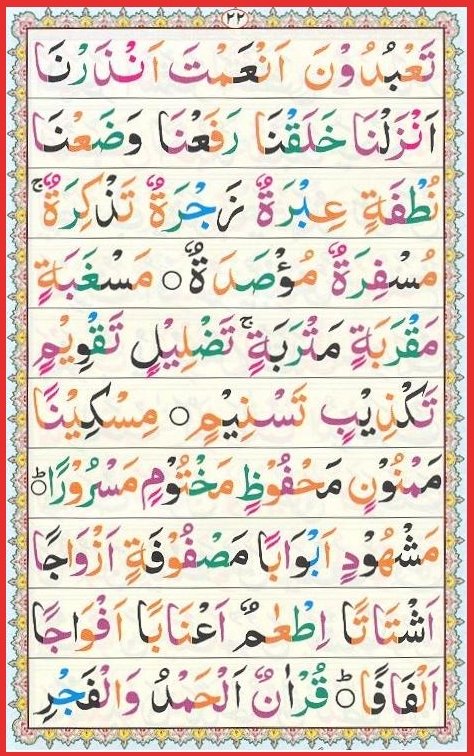 ٢٢
تَعْبُدُوْنَ اَنْعَمْتَ اَنْذَرْنَا
اَنْزَلْنَا خَلَقْنَا رَفَعْنَا وَضَعْنَا
نُطْفَةٍ عِبْرَةٌ زَجْرَةٌ تَذْكِرَةٌ ۚ
مُسْفِرَةٌ مُؤْصَدَةٌ ○ مَسْغَبَةٍ
مَقْرَبَةٍ مَتْرَبَةٍ ۚ تَضْلِيْلٍ تَقْوِيْمٍ
تَكْذِيْبٍ تَسْنِيْمٍ ○ مِسْكِيْنًا
مَمْنُوْنٍ مَحْفُوْظٍ مَخْتُوْمٍ مَسْرُوْرًا ؕ○
مَشْهُوْدٍ اَبْوَابًا مَصْفُوْفَةٍ اَزْوَاجًا
اَشْتَاتًا اِطْعٰمٌ اَعْنَابًا اَفْوَاجًا
اَلْفَافًا ؕ○ قُرْاٰنٌ اَلْحَمْدُ وَالْفَجْرِ